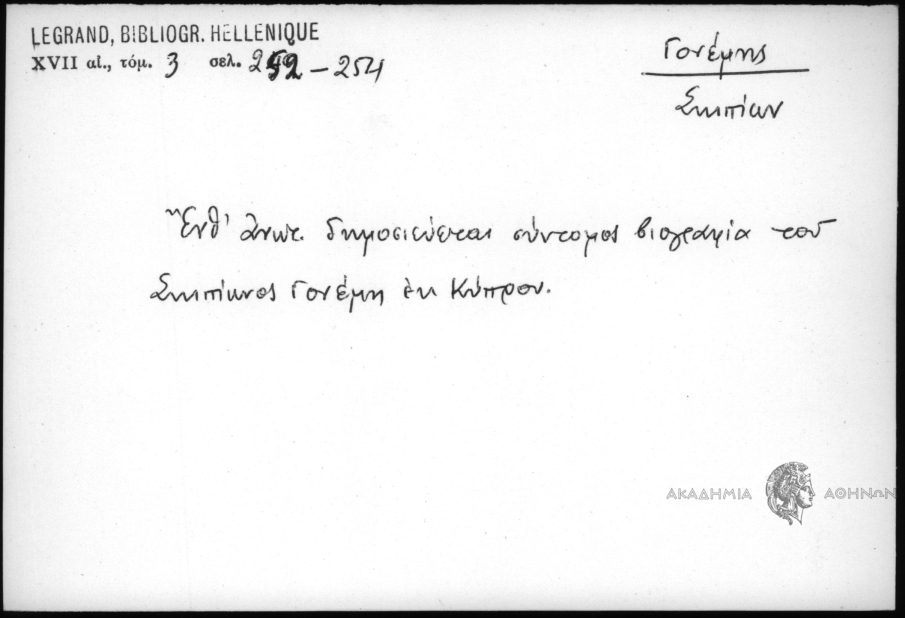 LEGRAND, BIBLIOGR. HELLENIQUE
XVII αἰ., τόμ. 3 σελ. 252 – 254
Γονέμης
Σκιπίων
Ἔνθ' ἀνωτ. δημοσιεύεται σύντομος βιογραφία τοῦ
Σκιπίωνος Γονέμη ἐκ Κύπρου.
ΑΚΑΔΗΜΙΑ ΑΘΗΝΩΝ